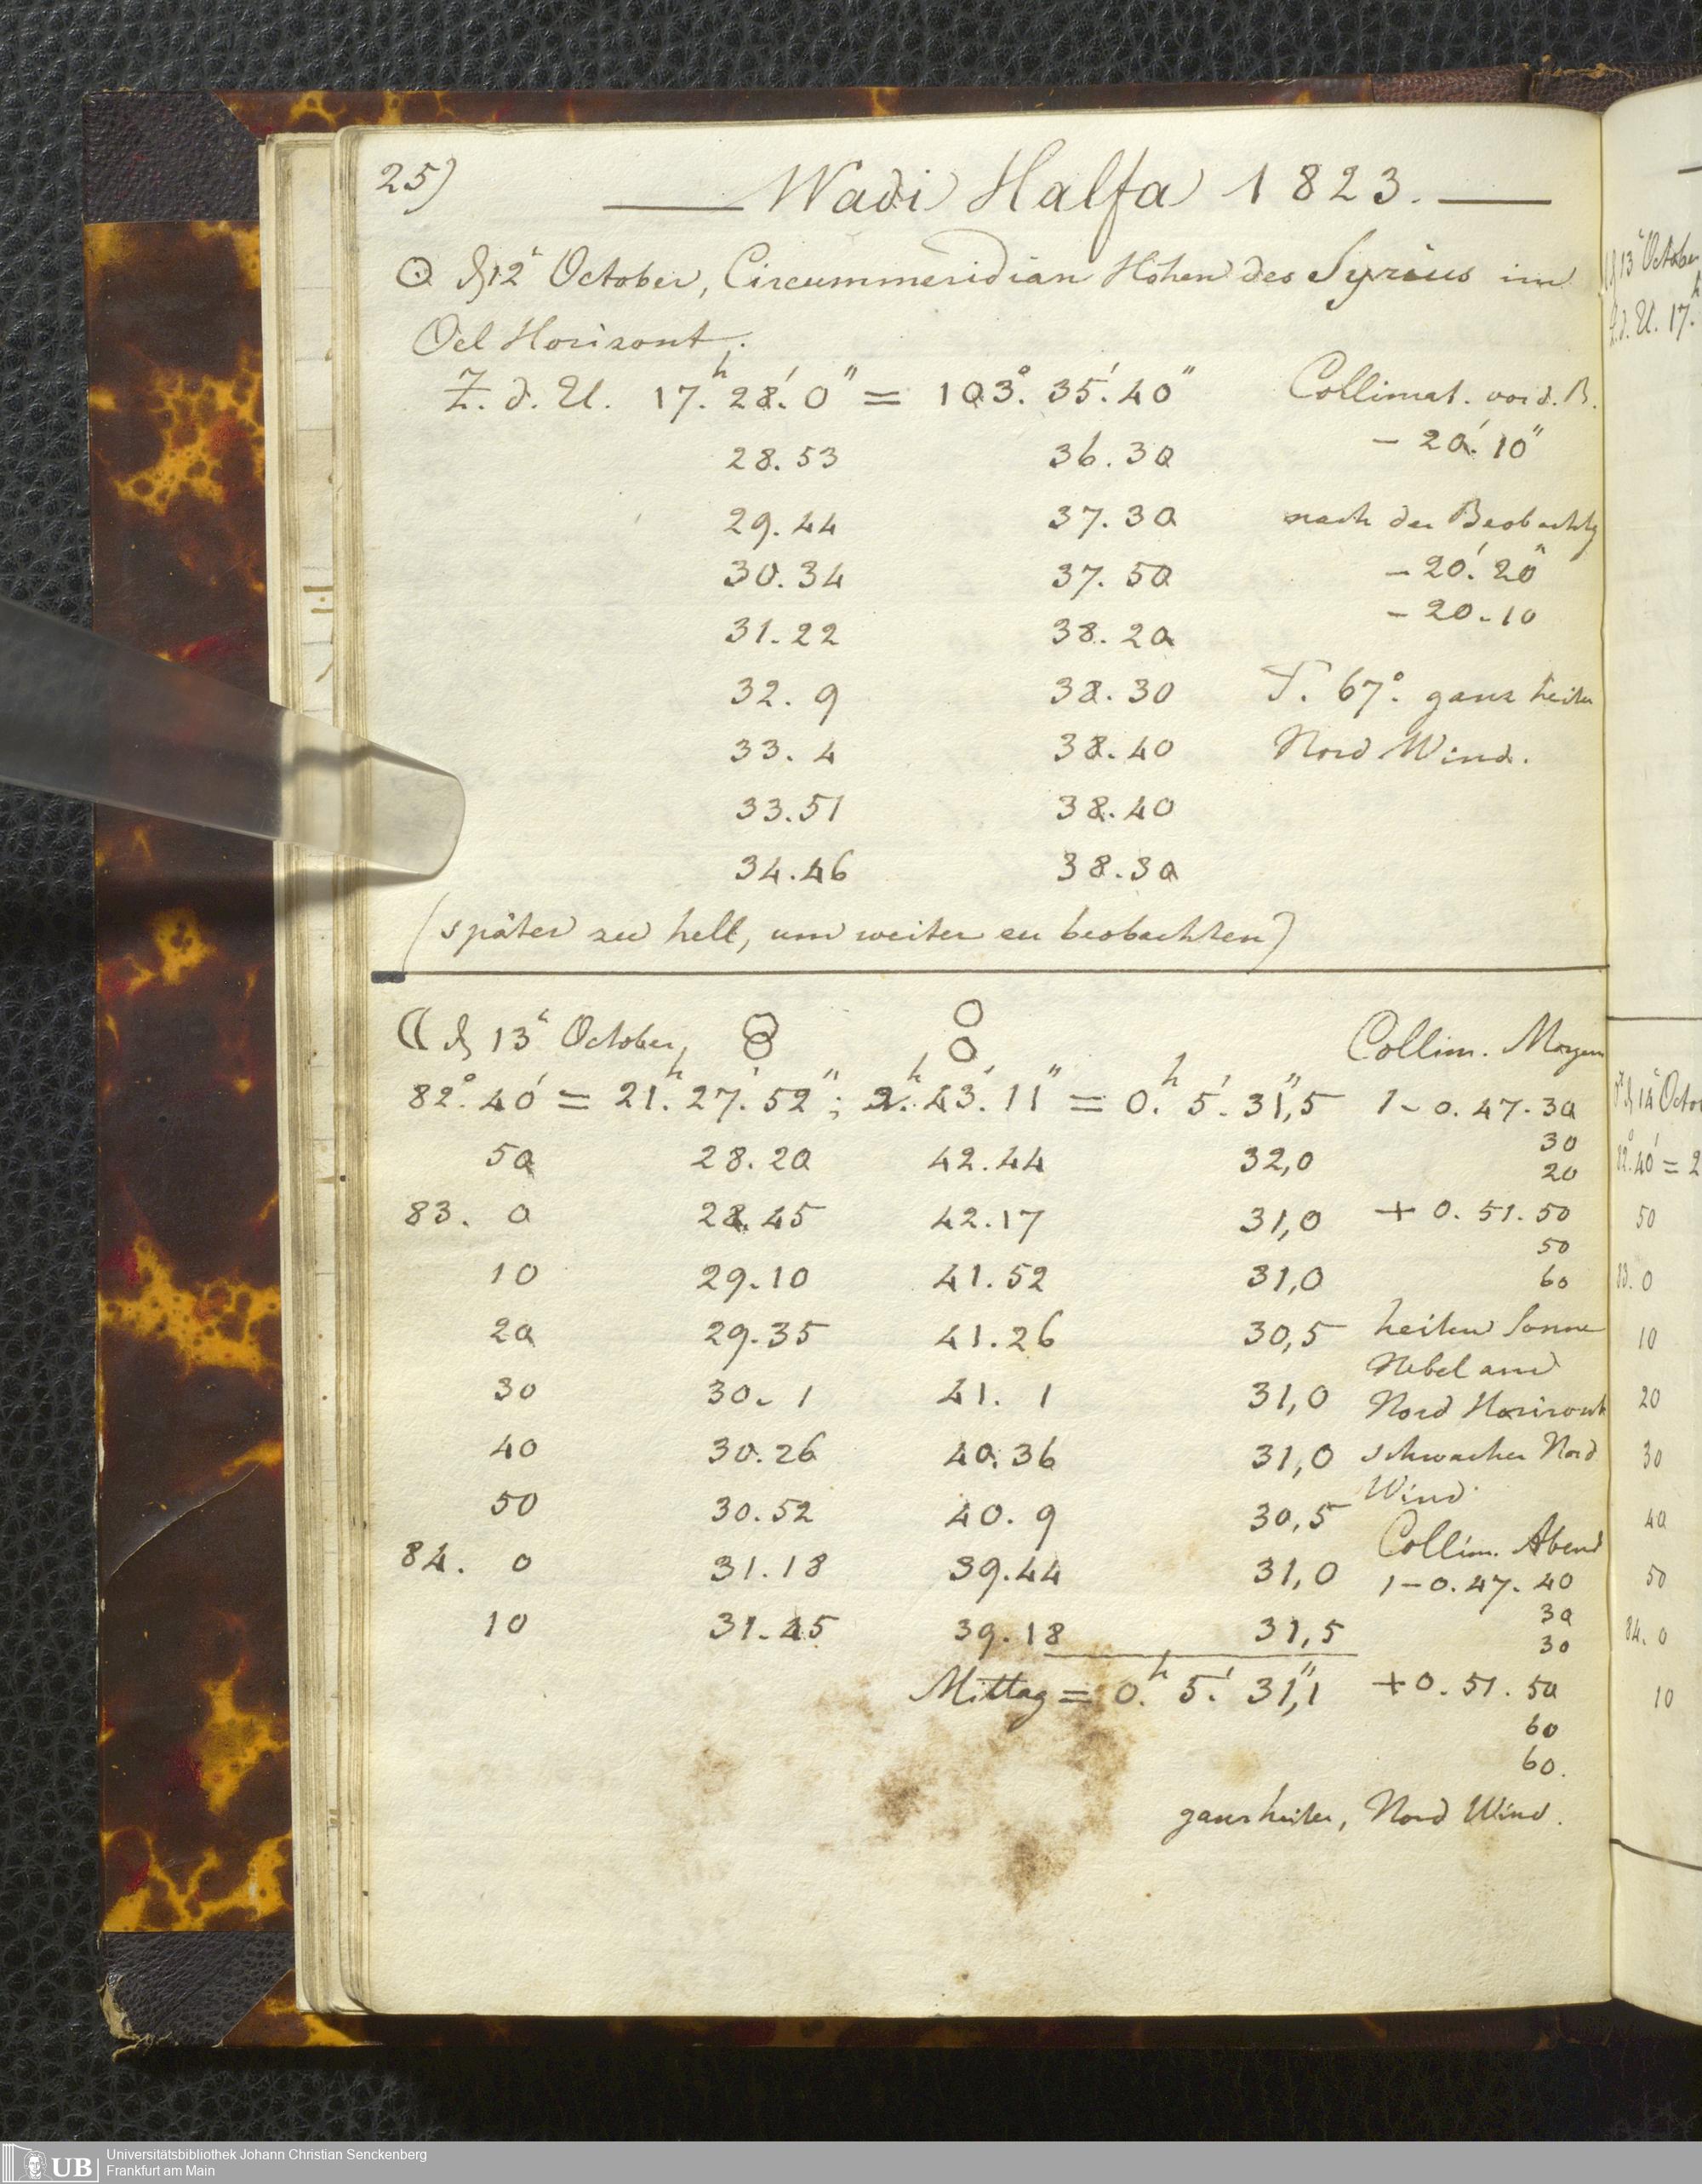 25)
Wadi Halfa 1823.
☉ d 12ᵗ October, Circummeridian Höhen des Syrius im
Oel Horizont.
Z. d. U. 17.ʰ 28.′ 0″ = 103.° 35.′ 40″ Collimat. vor d. B.
− 20.′ 10″
28.53 36.30
29.44 37.30 nach der Beobachtg
30.34 37.50 − 20.′ 20″
− 20. 10
31.22 38.20
32. 9 38.30 T. 67°. ganz heiter
33. 4 38.40 Nord Wind.
33.51 38.40
34.46 38.30
(später zu hell, um weiter zu beobachten)
☾ d 13ᵗ October, Collim. Morgen
82.° 40′ = 21.ʰ 27.′ 52″; 2.ʰ 43.′ 11″ = 0.ʰ 5.′ 31″,5 1 − 0. 47. 30
30
50 28.20 42.44 32,0 20
83. 0 28.45 42.17 31,0 + 0. 51. 50
50
10 29.10 41.52 31,0 60
20 29.35 41.26 30,5 heitere Sonne
Nebel am
30 30. 1 41. 1 31,0 Nord Horizont
40 30.26 40.36 31,0 schwacher Nord
Wind.
50 30.52 40. 9 30,5
Collim. Abend
84. 0 31.18 39.44 31,0 1 − 0. 47. 40
30
10 31.45 39.18 31,5 30
Mittag = 0.ʰ 5.′ 31″,1 + 0. 51. 50
60
60.
ganz heiter, Nord Wind.
d 13ᵗ October
Z. d. U. 17.ʰ
d 14ᵗ Octo
82.° 40′ = 2
50
83. 0
10
20
30
40
50
84. 0
10
UB
Universitätsbibliothek Johann Christian Senckenberg
Frankfurt am Main